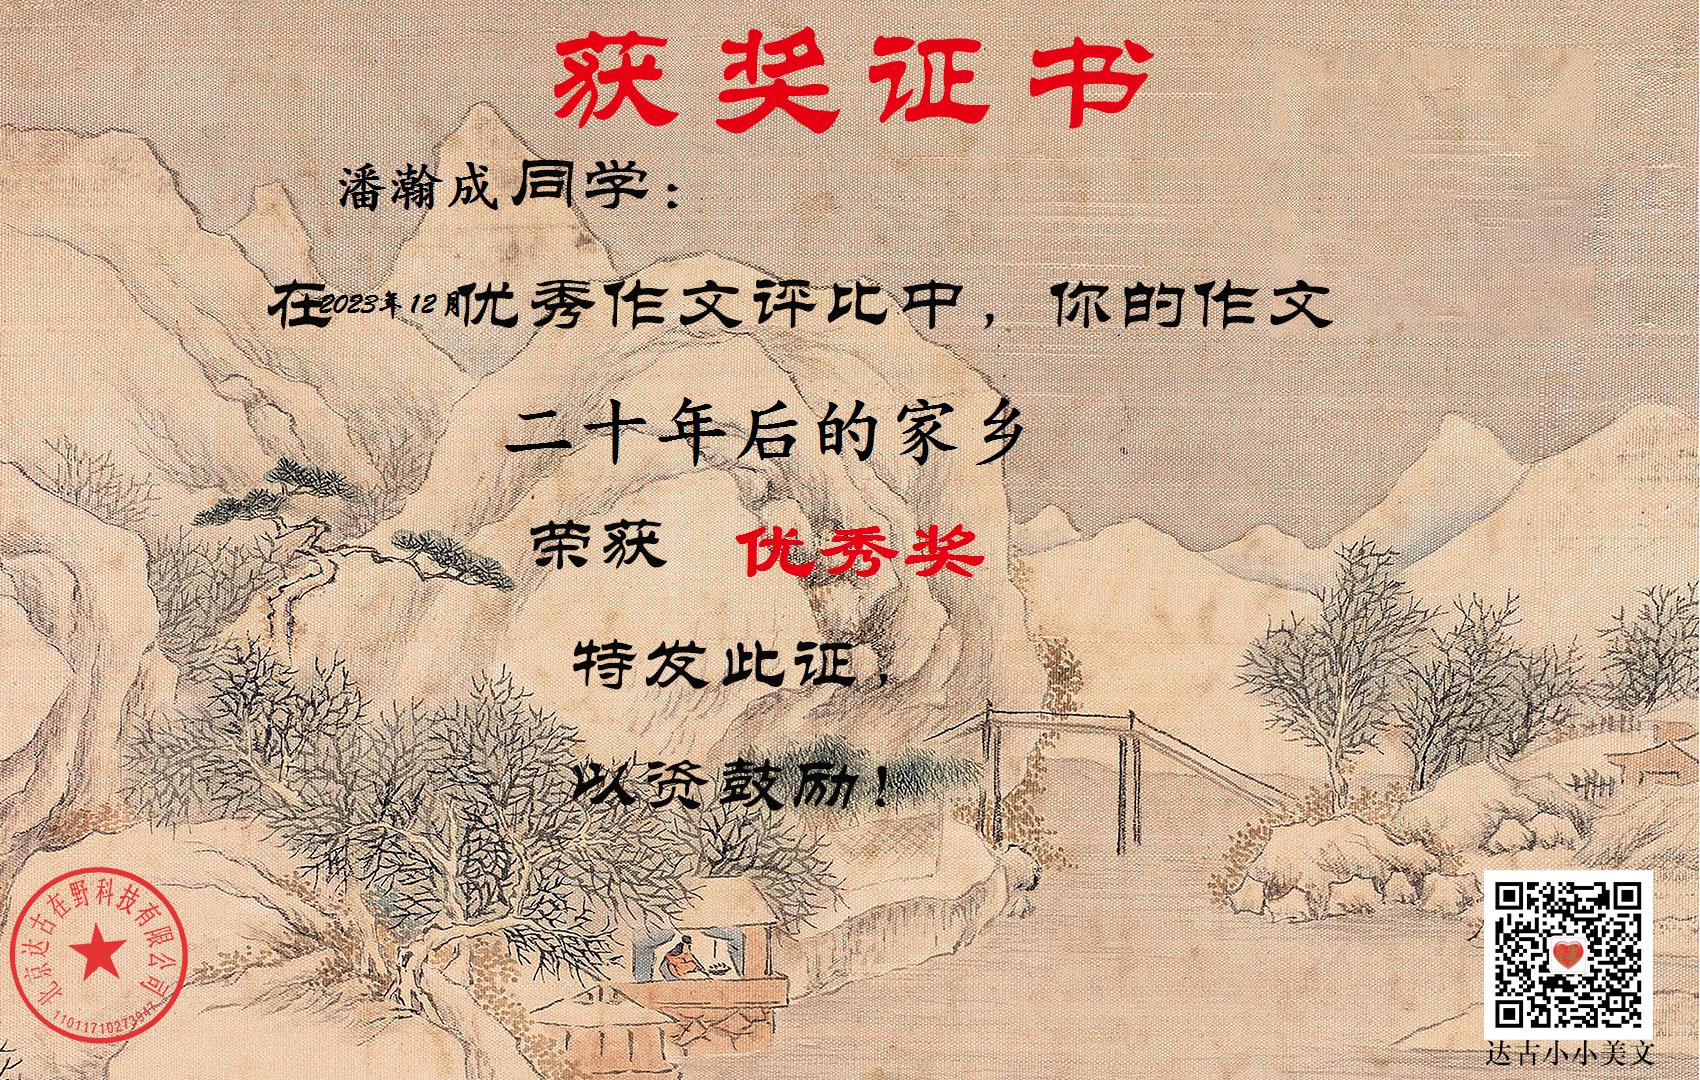 获奖证书
潘瀚成同学：
在2023年12月优秀作文评比中，你的作文
二十年后的家乡
荣获 优秀奖
特发此证，
以资鼓励！
北京达古在野科技有限公司
11011710273947
达古小小美文